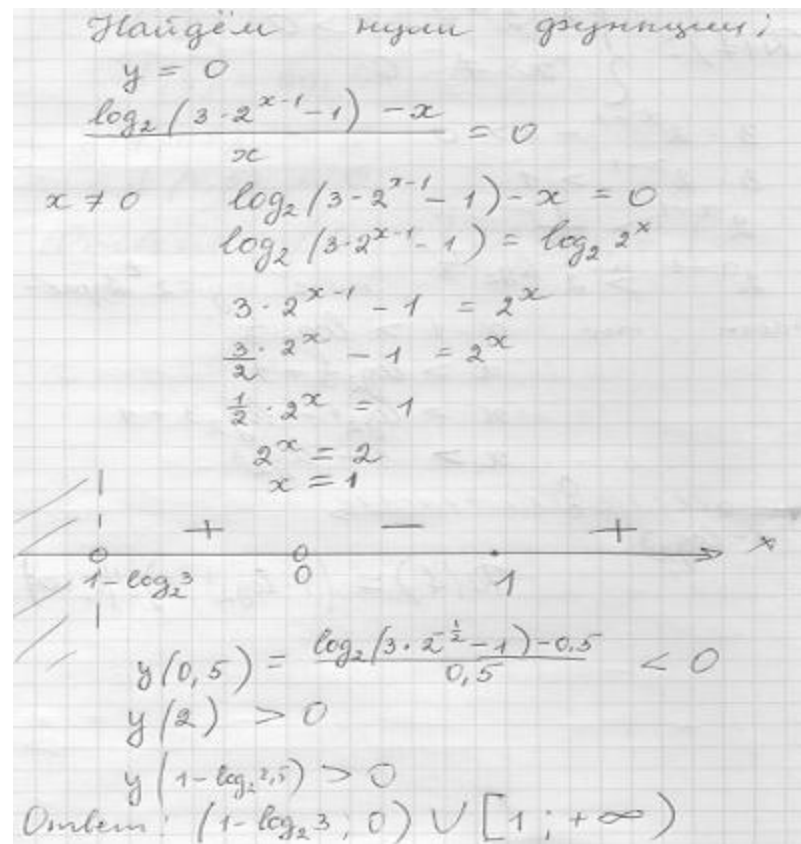 Найдём нули функции:
y = 0
log₂(3·2^(x-1) - 1) - x / x = 0
x ≠ 0 log₂(3·2^(x-1) - 1) - x = 0
log₂(3·2^(x-1) - 1) = log₂ 2^x
3·2^(x-1) - 1 = 2^x
3/2 · 2^x - 1 = 2^x
1/2 · 2^x = 1
2^x = 2
x = 1
+ − +
1-log₂3 0 1 x
y(0,5) = log₂(3·2^(-1/2) - 1) - 0,5 / 0,5 < 0
y(2) > 0
y(1-log₂2,5) > 0
Ответ: (1-log₂3; 0) ∪ [1; +∞)